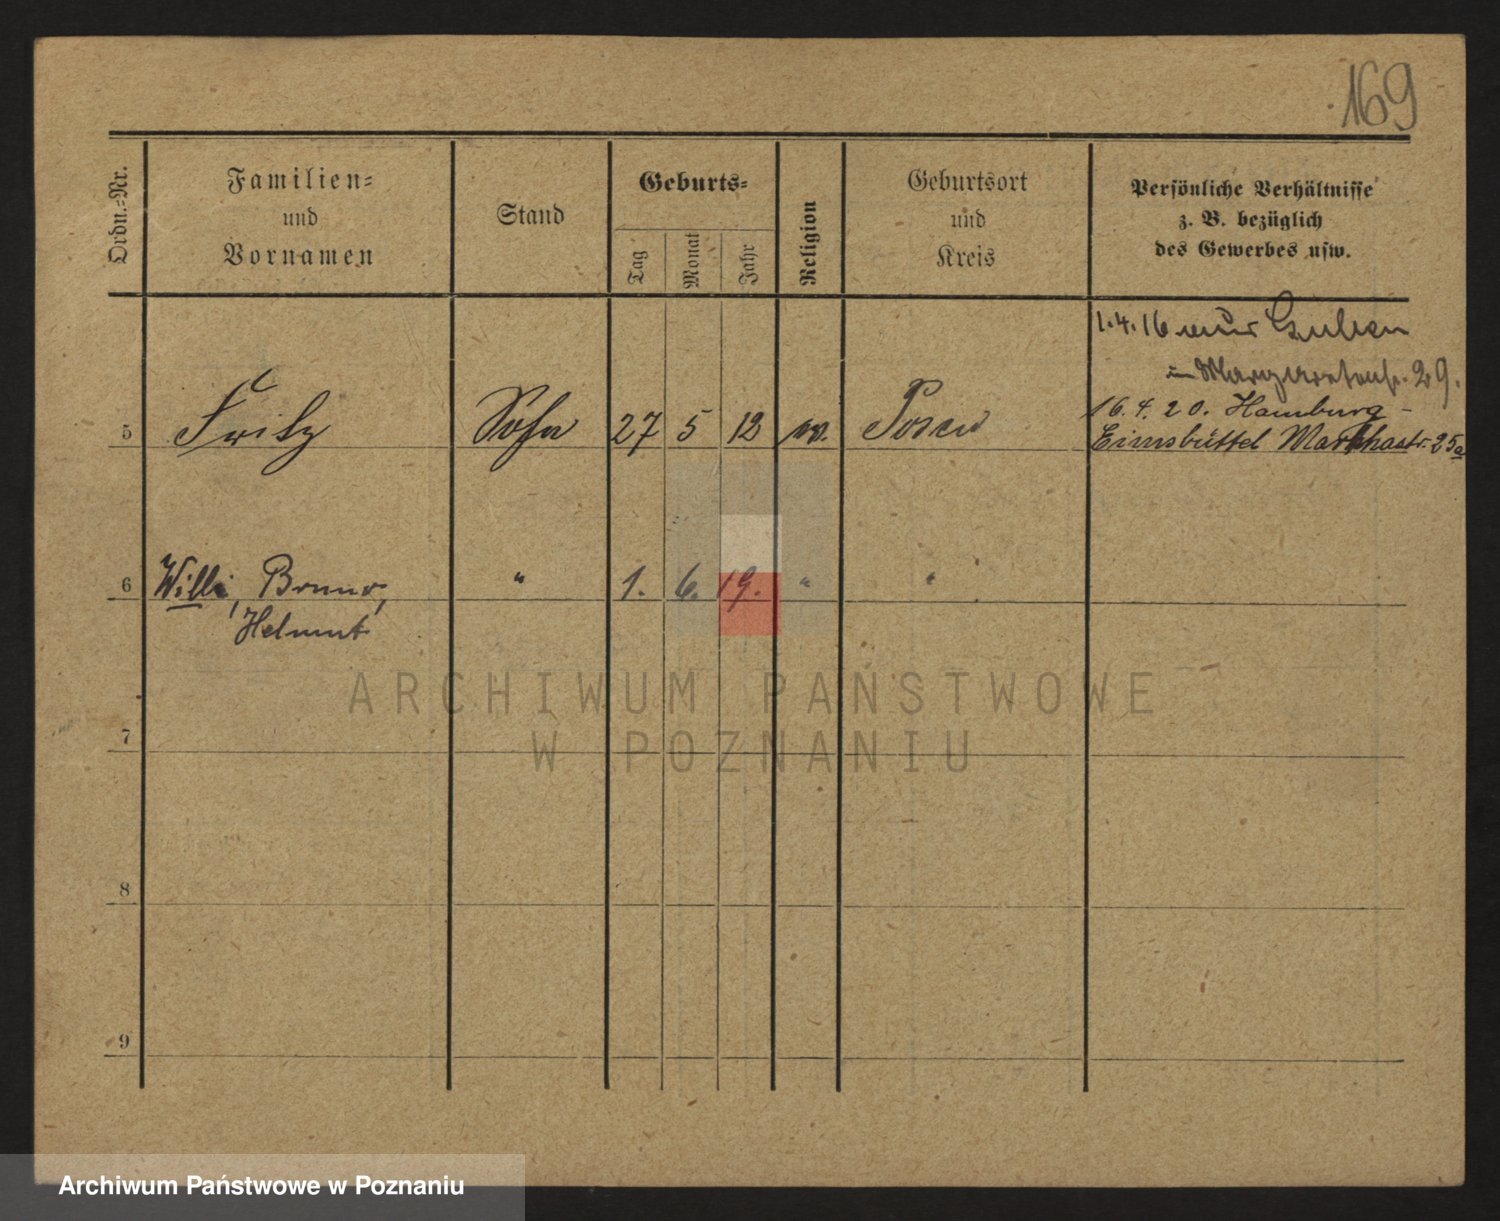 169
Ordn.-Nr.
Familien-
und
Vornamen
Stand
Geburts-
Tag
Monat
Jahr
Religion
Geburtsort
und
Kreis
Persönliche Verhältnisse
z. B. bezüglich
des Gewerbes usw.
1.4.16 Guben
29.
16.4.20. Hamburg-
5 Fritz Sohn 27 5 12 ev. Posen Eimsbüttel Marthastr. 25a
6 Willi, Bruno, " 1. 6. 19. " "
Helmut
7
8
9
ARCHIWUM PAŃSTWOWE
W POZNANIU
Archiwum Państwowe w Poznaniu